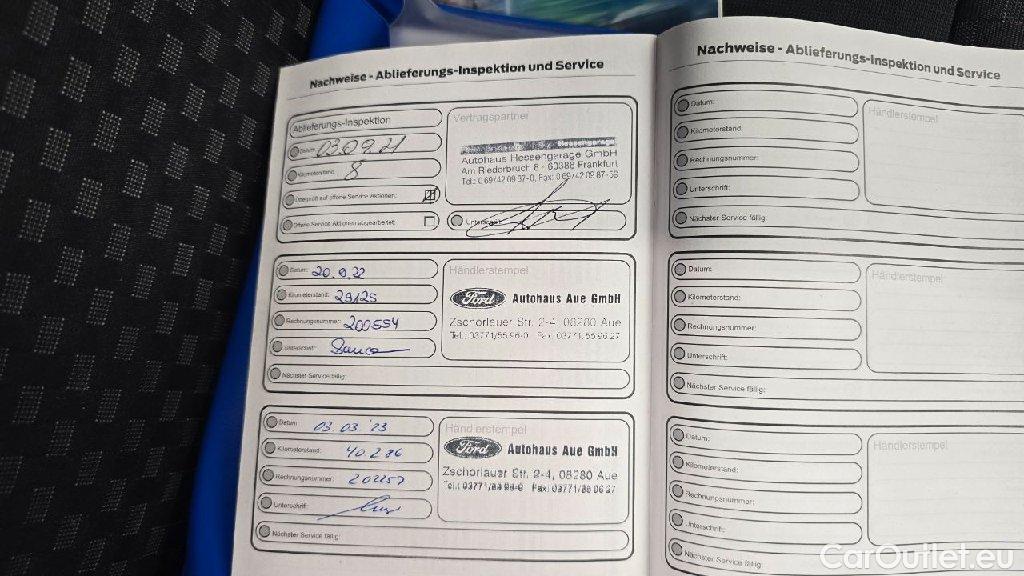 Nachweise - Ablieferungs-Inspektion und Service
Ablieferungs-Inspektion
Datum: 03.09.21
Kilometerstand: 8
Überprüft auf offene Service Aktionen:
Offene Service Aktionen ausgearbeitet:
Vertragspartner
Autohaus Hessengarage GmbH
Am Riederbruch 8 - 60388 Frankfurt
Unterschrift:
Datum: 20.9.22
Kilometerstand: 29125
Rechnungsnummer: 200554
Unterschrift:
Nächster Service fällig:
Händlerstempel
Ford Autohaus Aue GmbH
Zschorlauer Str. 2-4, 08280 Aue
Tel.: 03771/55 96-0 Fax: 03771/55 96 27
Datum: 03.03.23
Kilometerstand: 40.286
Rechnungsnummer: 202257
Unterschrift:
Nächster Service fällig:
Händlerstempel
Ford Autohaus Aue GmbH
Zschorlauer Str. 2-4, 08280 Aue
Nachweise - Ablieferungs-Inspektion und Service
Datum:
Kilometerstand:
Rechnungsnummer:
Unterschrift:
Nächster Service fällig:
Händlerstempel
Datum:
Kilometerstand:
Rechnungsnummer:
Unterschrift:
Nächster Service fällig:
Händlerstempel
Datum:
Kilometerstand:
Rechnungsnummer:
Unterschrift:
Nächster Service fällig:
Händlerstempel
CarOutlet.eu